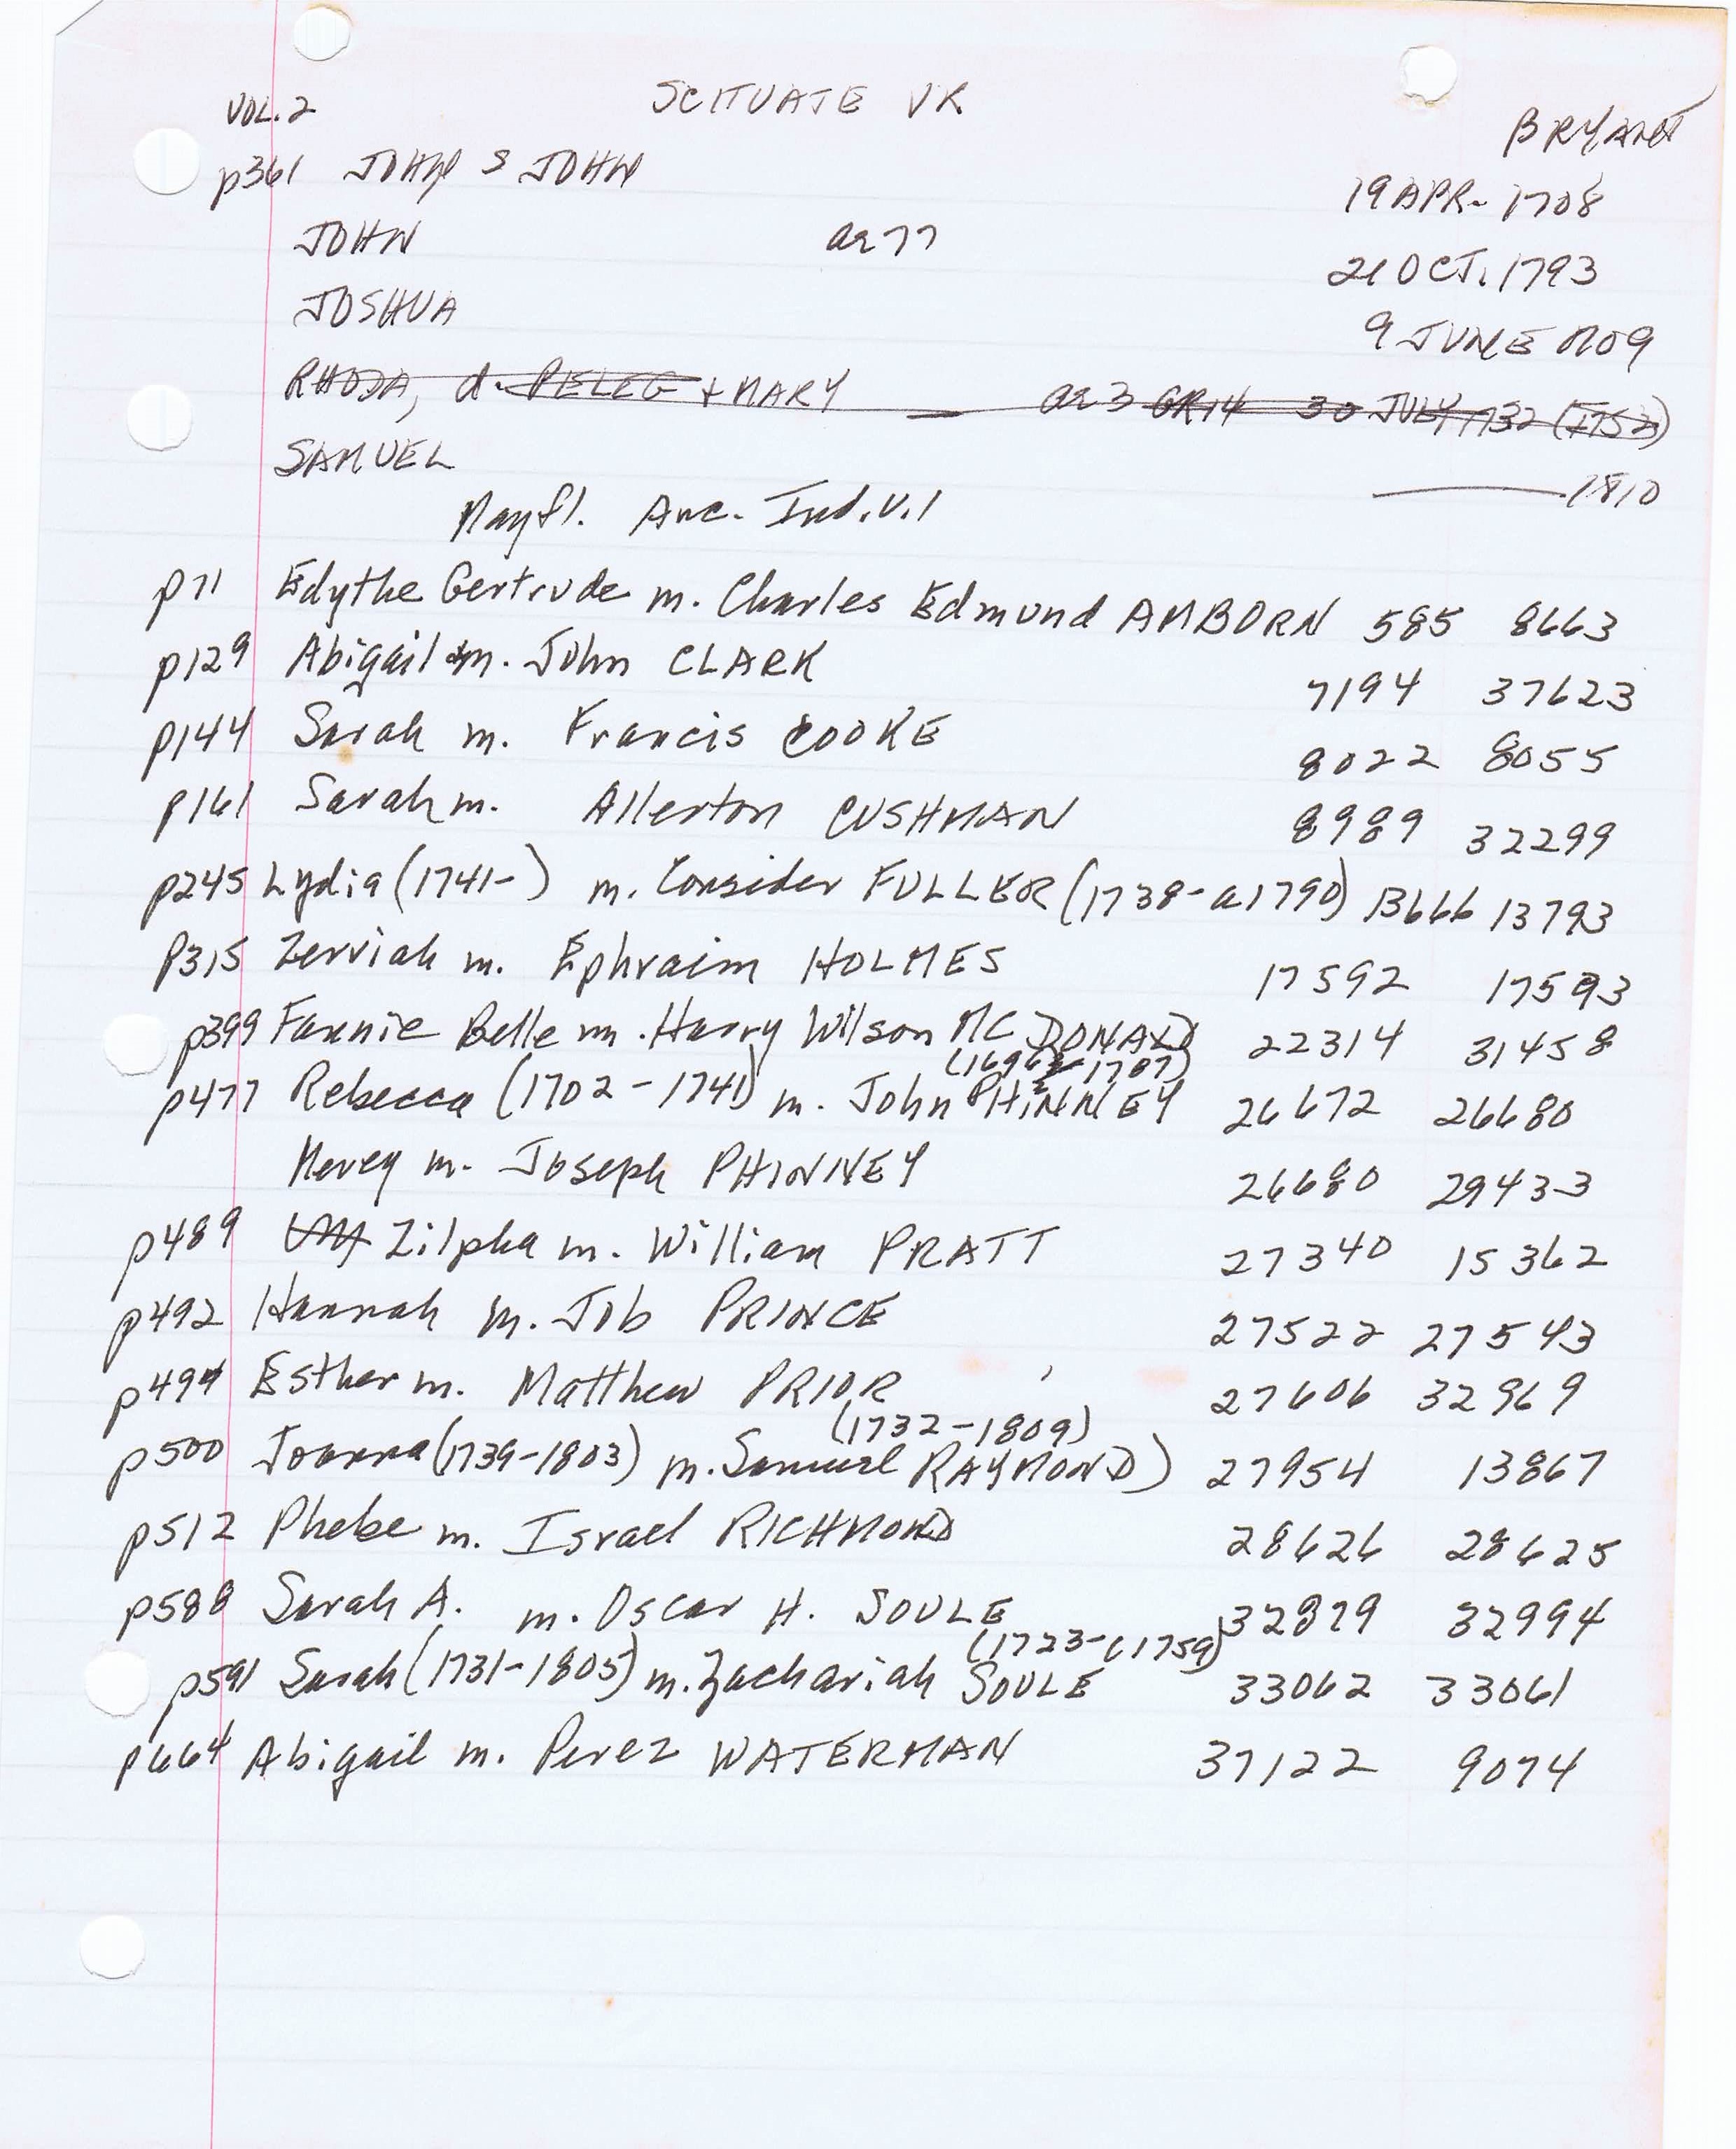 VOL. 2 SCITUATE VR BRYANT
p361 JOHN S JOHN 19 APR. 1708
JOHN ae 77 21 OCT. 1793
JOSHUA 9 JUNE 1709
RHODA, d. PELEG + MARY — ae 3 GR14 30 JULY 1732 (1752)
SAMUEL —— 1810
Mayfl. Anc. Ind. V. 1
p71 Edythe Gertrude m. Charles Edmund AMBORN 585 8663
p129 Abigail m. John CLARK 7194 37623
p144 Sarah m. Francis COOKE 8022 8055
p161 Sarah m. Allerton CUSHMAN 8989 32299
p245 Lydia (1741- ) m. Consider FULLER (1738-a1790) 13666 13793
p315 Zerviah m. Ephraim HOLMES 17592 17593
p399 Fannie Belle m. Harry Wilson MCDONALD 22314 31458
(1696-1787)
p477 Rebecca (1702-1741) m. John PHINNEY 26672 26680
Mercy m. Joseph PHINNEY 26680 29433
p489 Zilpha m. William PRATT 27340 15362
p492 Hannah m. Job PRINCE 27522 27543
p494 Esther m. Matthew PRIOR 27606 32969
(1732-1809)
p500 Joanna (1739-1803) m. Samuel RAYMOND) 27954 13867
p512 Phebe m. Israel RICHMOND 28626 28625
p588 Sarah A. m. Oscar H. SOULE 32879 32994
(1723-c1759)
p591 Sarah (1731-1805) m. Zachariah SOULE 33062 33061
p664 Abigail m. Perez WATERMAN 37122 9074